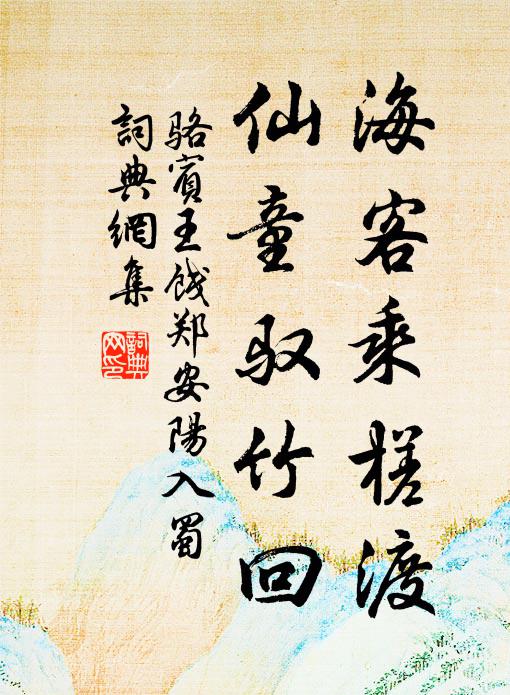 海客乘槎渡
仙童驭竹回
骆宾王饯郑安陽入蜀
詞典網集
詞典
网印